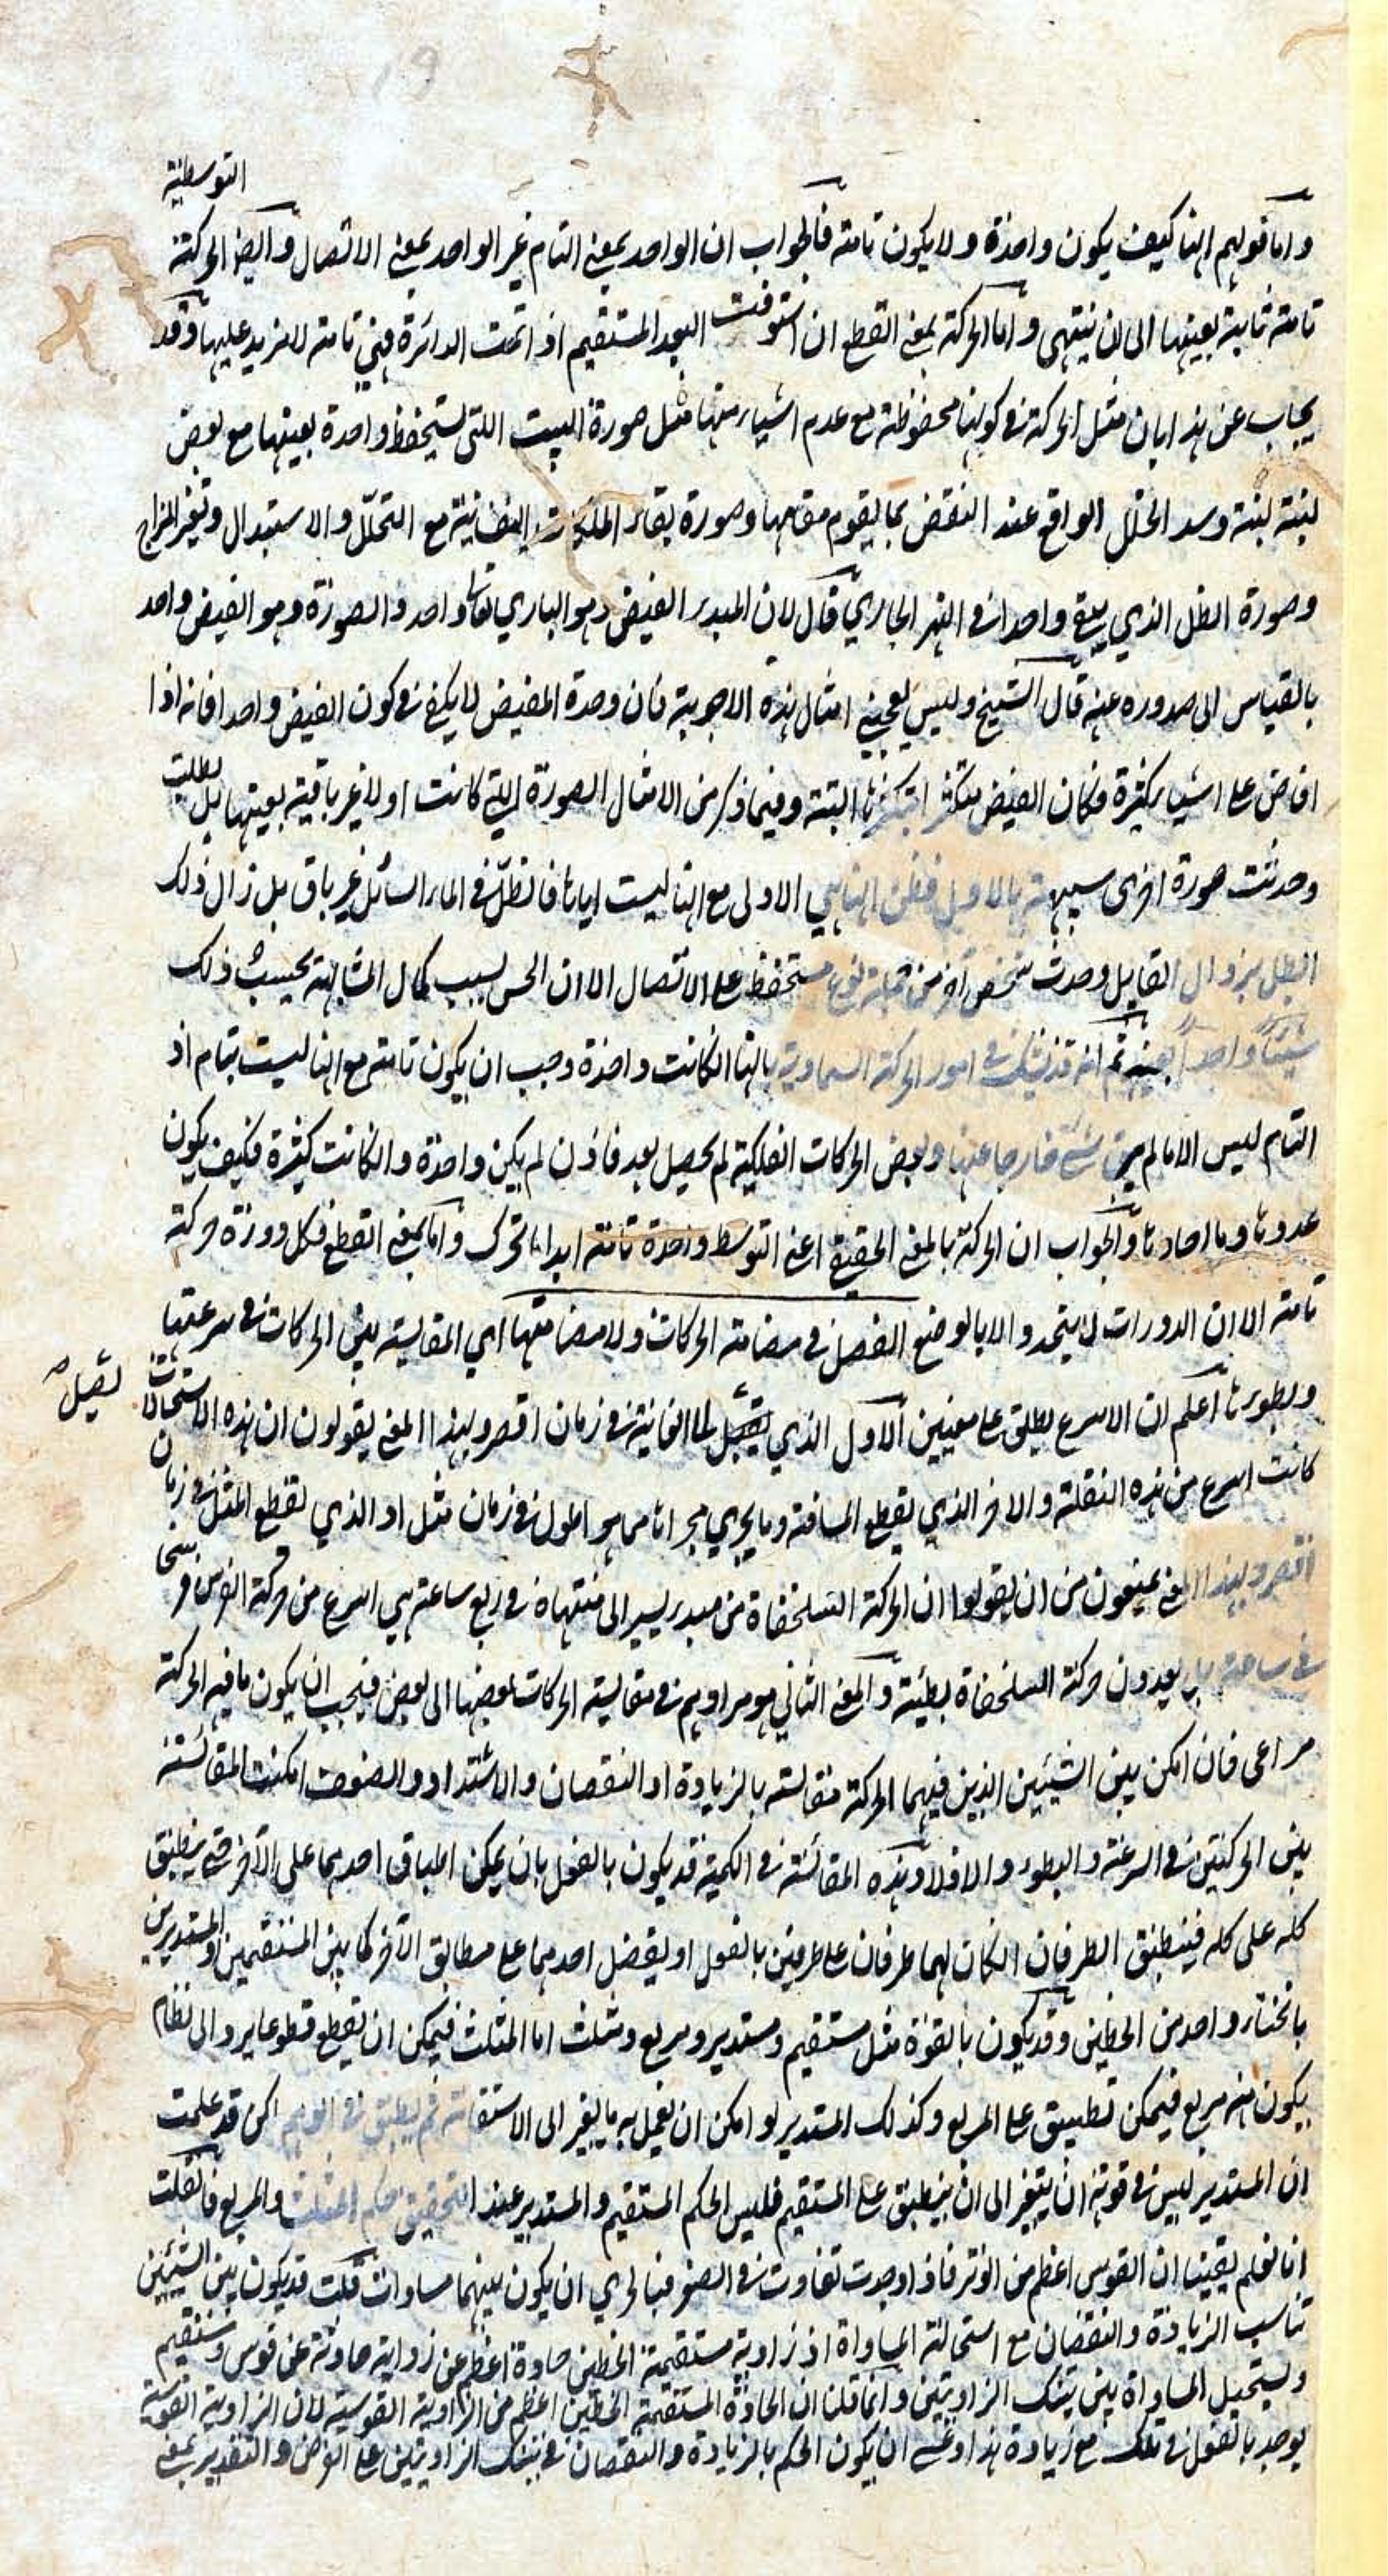 التوسطية
واما قولهم انها كيف يكون واحدة ولا يكون تامة فالجواب ان الواحد بمعنى التام غير الواحد بمعنى الاتصال وايضا الحركة
تامة ثابتة بعينها الى ان ينتهى واما الحركة بمعنى القطع ان استوفت البعد المستقيم اذ اتمت الدائرة فهي تامة لا مزيد عليها وقد
يجاب عن هذا بان مثل الحركة في كونها محفوظة مع عدم اشياء منها مثل صورة البيت اللتى تستحفظ واحدة بعينها مع نقض
لبنة لبنة وسد الخلل الواقع عند النقض بما يقوم مقامها وصورة بقاء الملكات النفسانية مع التحلل والاستبدال وتغير المزاج
وصورة الظل الذي يبقى واحدا في النهر الجاري قال لان المبدء الفيض وهو الباري تعالى واحد والصورة وهو الفيض واحد
بالقياس الى صدوره عنه قال الشيخ وليس يعجبني امثال هذه الاجوبة فان وحدة المفيض لا يكفي في كون الفيض واحدا فانه اذا
افاض على اشياء كثيرة فكان الفيض متكثرا بتكثرها البتة وفيما ذكر من الامثال الصورة التي كانت اولا غير باقية بعينها بل بطلت
وحدثت صورة اخرى شبيهة بالاول فظن انها هي الاولى مع انها ليست اياها فالظل في الماء السائل غير باق بل زال ذلك
الظل بزوال القابل وحدث شخص آخر من جملة نوع مستحفظ على الاتصال الا ان الحس لسبب كمال المشابهة يحسب ذلك
شيئا واحدا بعينه ثم انه قد يشك في امور الحركة السماوية بانها ان كانت واحدة وجب ان يكون تامة مع انها ليست بتام اذ
التام ليس الا ما لم يبق شئ خارجا عنها وبعض الحركات الفلكية لم يحصل بعد فاذن لم يكن واحدة وان كانت كثيرة فكيف يكون
عددها وما احادها والجواب ان الحركة بالمعنى الحقيقي اعني التوسط واحدة تامة ابدا ما تحرك واما بمعنى القطع فكل دورة حركة
تامة الا ان الدورات لا يتحدد الا بالوضع الفصل في مضامة الحركات ولا مضامتها اي المقايسة بين الحركات في سرعتها
وبطوءها اعلم ان الاسرع يطلق على معنيين الاول الذي يقبل لما الغاية في زمان اقصر وبهذا المعنى يقولون ان هذه الاستحالات
يصل
كانت اسرع من هذه النقلة والاخر الذي يقطع المسافة وما يجري مجراها مما هو اطول في زمان مثل او الذي يقطع المثل في زمان
اقصر وبهذا المعنى يمنعون من ان يقولوا ان الحركة السلحفاة من مبدء يسير الى منتهاه في ربع ساعة هي اسرع من حركة الفرس فرسخا
في ساعة بل يعدون حركة السلحفاة بطيئة والمعنى الثاني هو مرادهم في مقايسة الحركات بعضها الى بعض فيجب ان يكون ما فيه الحركة
مراعى فان امكن بين الشيئين الذين فيهما الحركة مقايسة بالزيادة او النقصان والاشتداد والضعف امكنت المقائسة
بين الحركتين في السرعة والبطوء والا فلا وهذه المقائسة في الكمية قد يكون بالفعل بان يمكن انطباق احدهما على الآخر حتى ينطبق
كله على كله فينطبق الطرفان ان كان لهما طرفان على طرفين بالفعل او يفضل احدهما على مطابق الآخر كما بين المستقيمين او المستديرين
بانحناء واحد من الخطين وقد يكون بالقوة مثل مستقيم ومستدير ومربع ومثلث اما المثلث فيمكن ان يقطع قطوعا يرد الى نظام
يكون منه مربع فيمكن تطبيق على المربع وكذلك المستدير لو امكن ان يعمل به ما يغير الى الاستقامة ثم يطبق في الوهم لكن قد علمت
ان المستدير ليس في قوته ان يتغير الى ان ينطبق على المستقيم فليس الحكم المستقيم والمستدير عند التحقيق حكم المثلث والمربع فان قلت
انا نعلم يقينا ان القوس اعظم من الوتر فاذا وجدت تفاوت في الصغر فبالحري ان يكون بينهما مساواة قلت قد يكون بين الشيئين
تناسب الزيادة والنقصان مع استحالة المساواة اذ زاوية مستقيمة الخطين حادة اعظم من زاوية حادثة عن قوس ومستقيم
ويستحيل المساواة بين تينك الزاويتين وانما قلنا ان الحادة المستقيمة الخطين اعظم من الزاوية القوسية لان الزاوية القوسية
يوجد بالفعل في تلك مع زيادة هذا وعسى ان يكون الحكم بالزيادة والنقصان في تينك الزاويتين على الفرض والتقدير بمعنى